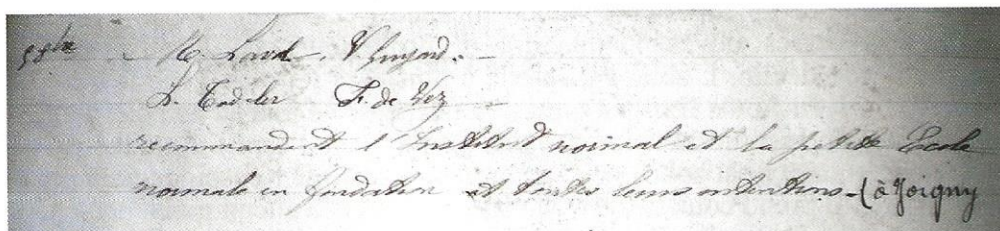 M. Laval - V. Guyard. -
D. Cadiler F. de Vez -
recommandent l'Institut normal et la petite Ecole
normale en fondation et toutes leurs intentions - (à Joigny